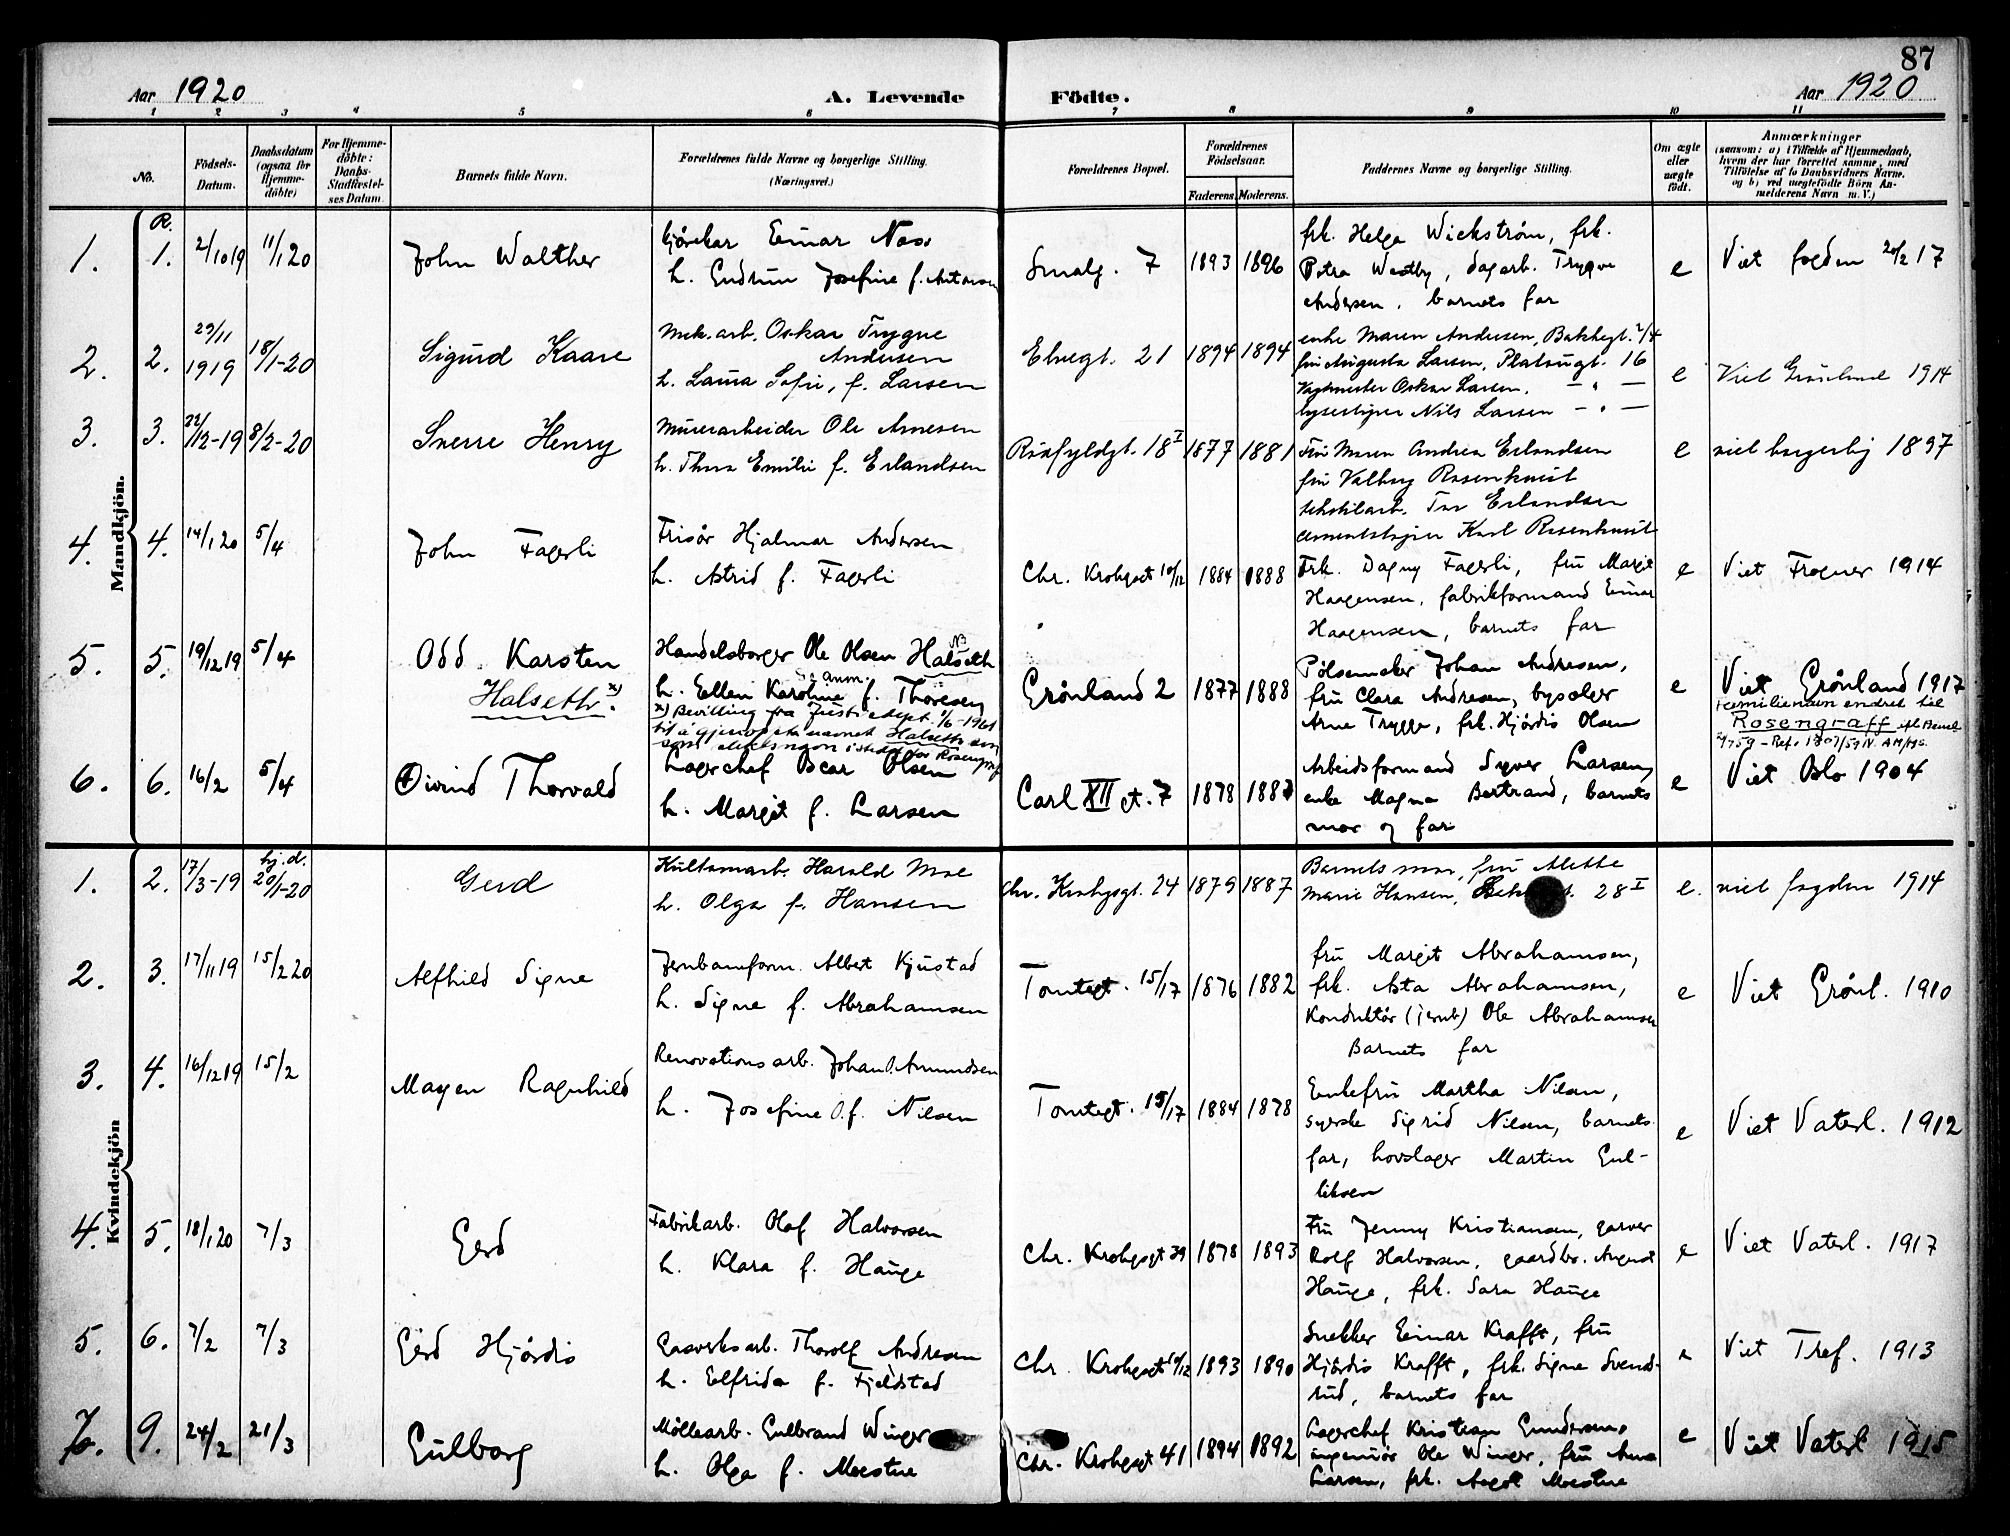 87
Aar 1920
A. Levende Födte.
Aar 1920
1 2 3 4 5 6 7 8 9 10 11
No.
Födsels-
Datum.
Daabsdatum
(ogsaa for
Hjemme-
döbte)
For Hjemme-
döbte:
Daabs-
Stadfæstel-
ses Datum.
Barnets fulde Navn.
Forældrenes fulde Navne og borgerlige Stilling.
(Næringsvei.)
Forældrenes Bopæl.
Forældrenes
Födselsaar.
Faderens. Moderens.
Faddernes Navne og borgerlige Stilling.
Om ægte
eller
uægte
födt.
Anmærkninger
(saasom: a) i Tilfælde af Hjemmedaab,
hvem der har forrettet samme, med
Tilföielse af to Daabsvidners Navne.
og b) ved uægtefödte Börn An-
melderens Navn m. V.)
Mandkjön.
R.
1. 1. 2/10 19 11/1 20
John Walther
Einar Næss
h. Gudrun Josefine f. Antonsen
Smalg. 7
1893 1896
frk. Helga Wickstrøm, frk.
Petra Westby, dagarb. Trygve
Andersen, barnets far
e
Viet fogden 20/2 17
2. 2. 29/11 1919 18/1-20
Sigurd Kaare
Mek. arb. Oskar Trygve
Andersen
h. Laura Sofie, f. Larsen
Elvegt. 21
1894 1894
enke Maren Andersen, Bakkegt. 2/4
fru Augusta Larsen, Platougt. 16
Oskar Larsen. — " —
Nils Larsen — " —
e
Viet Grønland 1914
3. 3. 22/12-19 8/2-20
Sverre Henry
Murerarbeider Ole Arnesen
h. Thora Emilie f. Erlandsen
Ryfylkegt. 18 I
1877 1881
Fru Maren Andrea Erlandsen
fru Valborg Rosenkvist
Tor Erlandsen
cementstøper Karl Rosenkvist
e
viet borgerlig 1897
4. 4. 14/1 20 5/4
John Fagerli
Frisør Hjalmar Andersen
h. Astrid f. Fagerli
Chr. Krohgsgt 10/12
1884 1888
Frk. Dagny Fagerli, fru Margit
Haagensen, fabrikformand Einar
Haagensen, barnets far
e
Viet Frogner 1914
5. 5. 19/12 19 5/4
Odd Karsten
Halseth. x)
Handelsborger Ole Olsen Halseth
NB
h. Ellen Karoline f. Thoresen
x) Bevilling fra Justisdept. 1/6-1961
til å gjenoppta navnet Halseth
som slektsnavn istedet for Rosengraff
Grønland 2
1877 1888
Pølsemaker Johan Andresen,
fru Clara Andresen, bysoler
Arne Trygge, frk. Hjørdis Olsen
e
Viet Grønland 1917
Familienavn endret til
Rosengraff
6. 6. 16/2 5/4
Øivind Thorvald
Lagerchef Oscar Olsen
h. Margit f. Larsen
Carl XII gt. 7
1878 1887
Arbeidsformand Syver Larsen,
enke Magna Bertrand, barnets
mor og far
e
Viet Oslo 1904
Kvindekjön
1. 2. 17/3-19 hj. d. 20/1-20
Gerd
Kullsmarb. Harald Moe
h. Olga f. Hansen
Chr. Krohgsgt. 24
1879 1887
Barnets mor, fru Mette
Marie Hansen, 28 I
e.
viet fogden 1914
2. 3. 17/11 19 15/2 20
Alfhild Signe
Jernbaneform. Albert Kjustad
h. Signe f. Abrahamsen
Tomtegt. 15/17
1876 1882
fru Margit Abrahamsen,
frk. Asta Abrahamsen,
Konduktør (jernb) Ole Abrahamsen
Barnets far
e
Viet Grønl. 1910
3. 4. 16/12 19 15/2
Mayen Ragnhild
Renovationsarb. Johan O. Amundsen
h. Josefine O. f. Nilsen
Tomtegt. 15/17
1884 1878
Enkefru Martha Nilsen,
syerske Sigrid Nilsen, barnets
far, hovslager Martin Gul-
liksen
e
Viet Vaterl. 1912
4. 5. 18/1 20 7/3
Gerd
Fabrikarb. Olaf Halvorsen
h. Klara f. Hauge
Chr. Krohgsgt 39
1878 1893
Fru Jenny Kristiansen, garver
Rolf Halvorsen, gaardbr. August
Hauge, frk. Sara Hauge
e
Viet Vaterl. 1917
5. 6. 7/2 7/3
Gerd Hjørdis
Gasverksarb. Thorolf Andresen
h. Elfrida f. Fjeldstad
Chr. Krohgsgt 10/12
1893 1890
Snekker Einar Krafft, fru
Hjørdis Krafft, frk. Signe Svends-
rud, barnets far
e
Viet Tref. 1913
9. 24/2 21/3
Gulborg
Møllearb. Gulbrand Winger
h. Olga f. Moestue
Chr. Krohgsgt 41
1894 1892
Lagerchef Kristian Gundersen,
ingeniør Ole Winger, fru Anna
Larsen, frk. Aagot Moestue
e
Viet Vaterl 1915